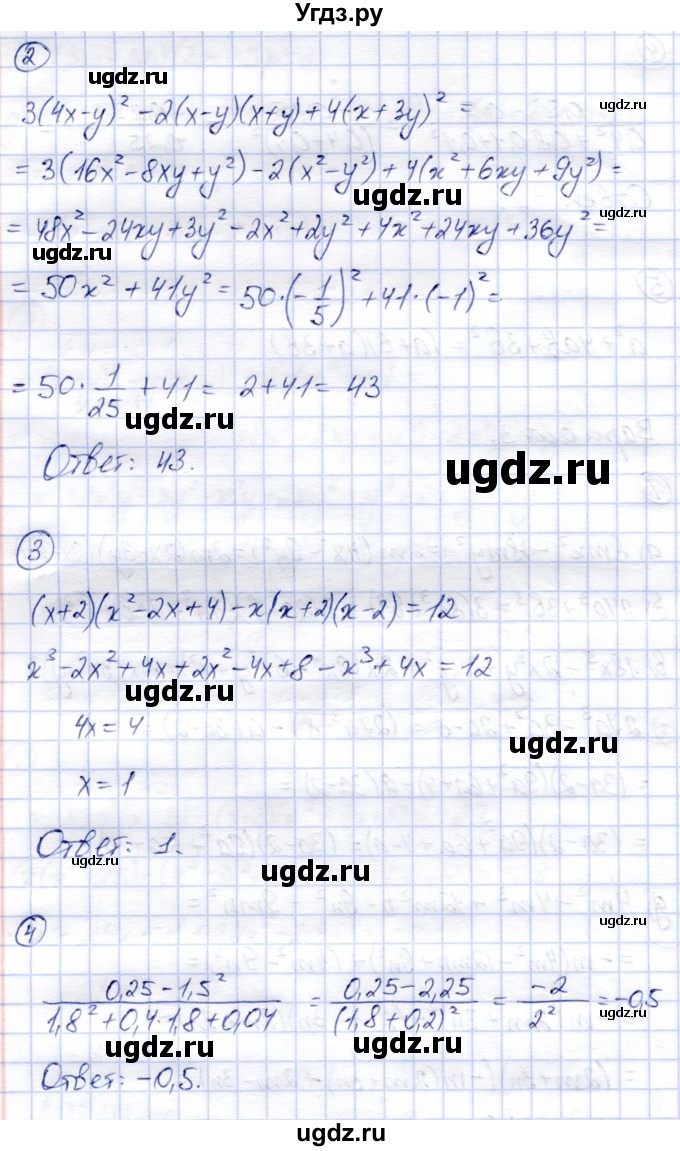 Угдз.ру
2
ugdz.ru
3(4x-y)² - 2(x-y)(x+y) + 4(x+3y)² =
ugdz.ru
= 3(16x² - 8xy + y²) - 2(x² - y²) + 4(x² + 6xy + 9y²) =
ugdz.ru
= 48x² - 24xy + 3y² - 2x² + 2y² + 4x² + 24xy + 36y² =
ugdz.ru
= 50x² + 41y² = 50·(-1/5)² + 41·(-1)² =
= 50·1/25 + 41 = 2 + 41 = 43
ugdz.ru
Ответ: 43.
ugdz.ru
3
ugdz.ru
(x+2)(x² - 2x + 4) - x(x+2)(x-2) = 12
x³ - 2x² + 4x + 2x² - 4x + 8 - x³ + 4x = 12
ugdz.ru
4x = 4
ugdz.ru
x = 1
Ответ: 1.
ugdz.ru
ugdz.ru
4
ugdz.ru
(0,25 - 1,5²)/(1,8² + 0,4·1,8 + 0,04) = (0,25 - 2,25)/(1,8 + 0,2)² = -2/2² = -0,5
ugdz.ru
ugdz.ru
ugdz.ru
Ответ: -0,5.
ugdz.ru